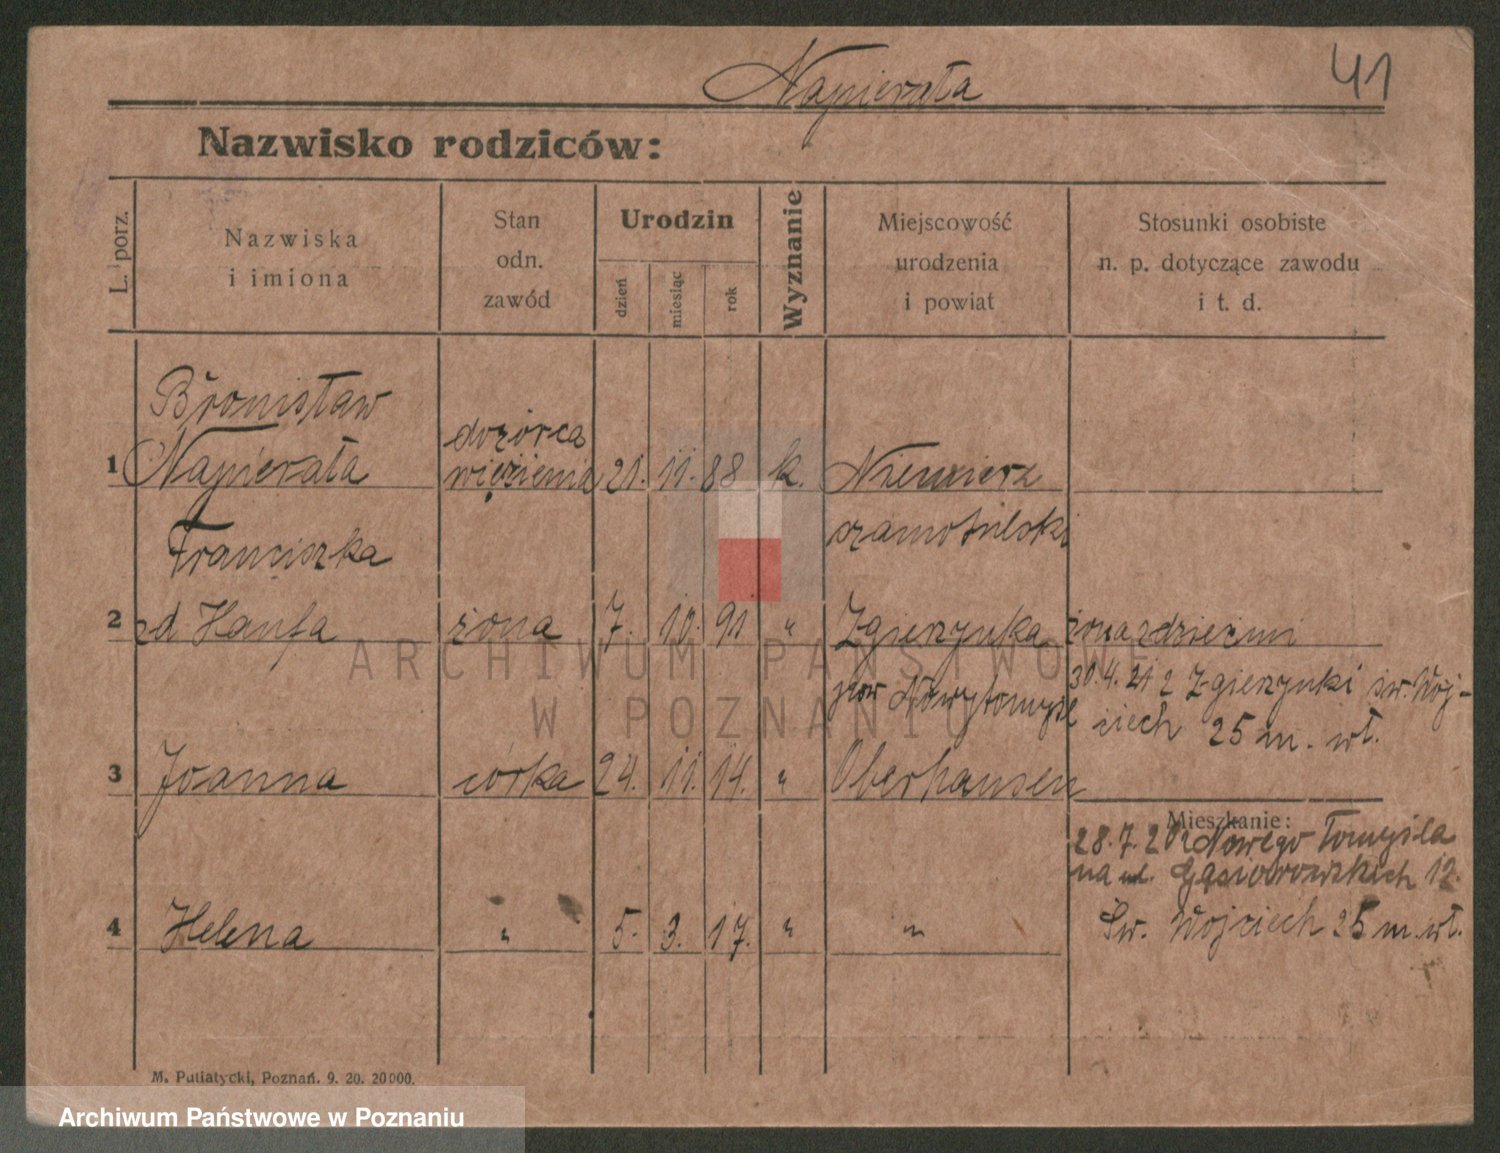 Napierała 41
Nazwisko rodziców:
L. porz.
Nazwiska
i imiona
Stan
odn.
zawód
Urodzin
dzień
miesiąc
rok
Wyznanie
Miejscowość
urodzenia
i powiat
Stosunki osobiste
n. p. dotyczące zawodu
i t. d.
Bronisław
dozorca
1 Napierała więzienia 21. 11. 88 k. Niemierz
szamotulski
Franciszka
2 zd Hanfa żona 7. 10. 91 " Zgierzynka żona z dziećmi
pow Nowytomyśl 30.4.21 z Zgierzynki św. Woj-
ciech 25 m. wł.
3 Joanna córka 24. 11. 14. " Oberhausen
Mieszkanie:
28.7.20 z Nowego Tomyśla
na ul. Gąsiorowskich 12.
4 Helena " 5. 3. 17. " " Św. Wojciech 25 m. wł.
M. Putiatycki, Poznań. 9. 20. 20000.
ARCHIWUM PAŃSTWOWE
W POZNANIU
Archiwum Państwowe w Poznaniu